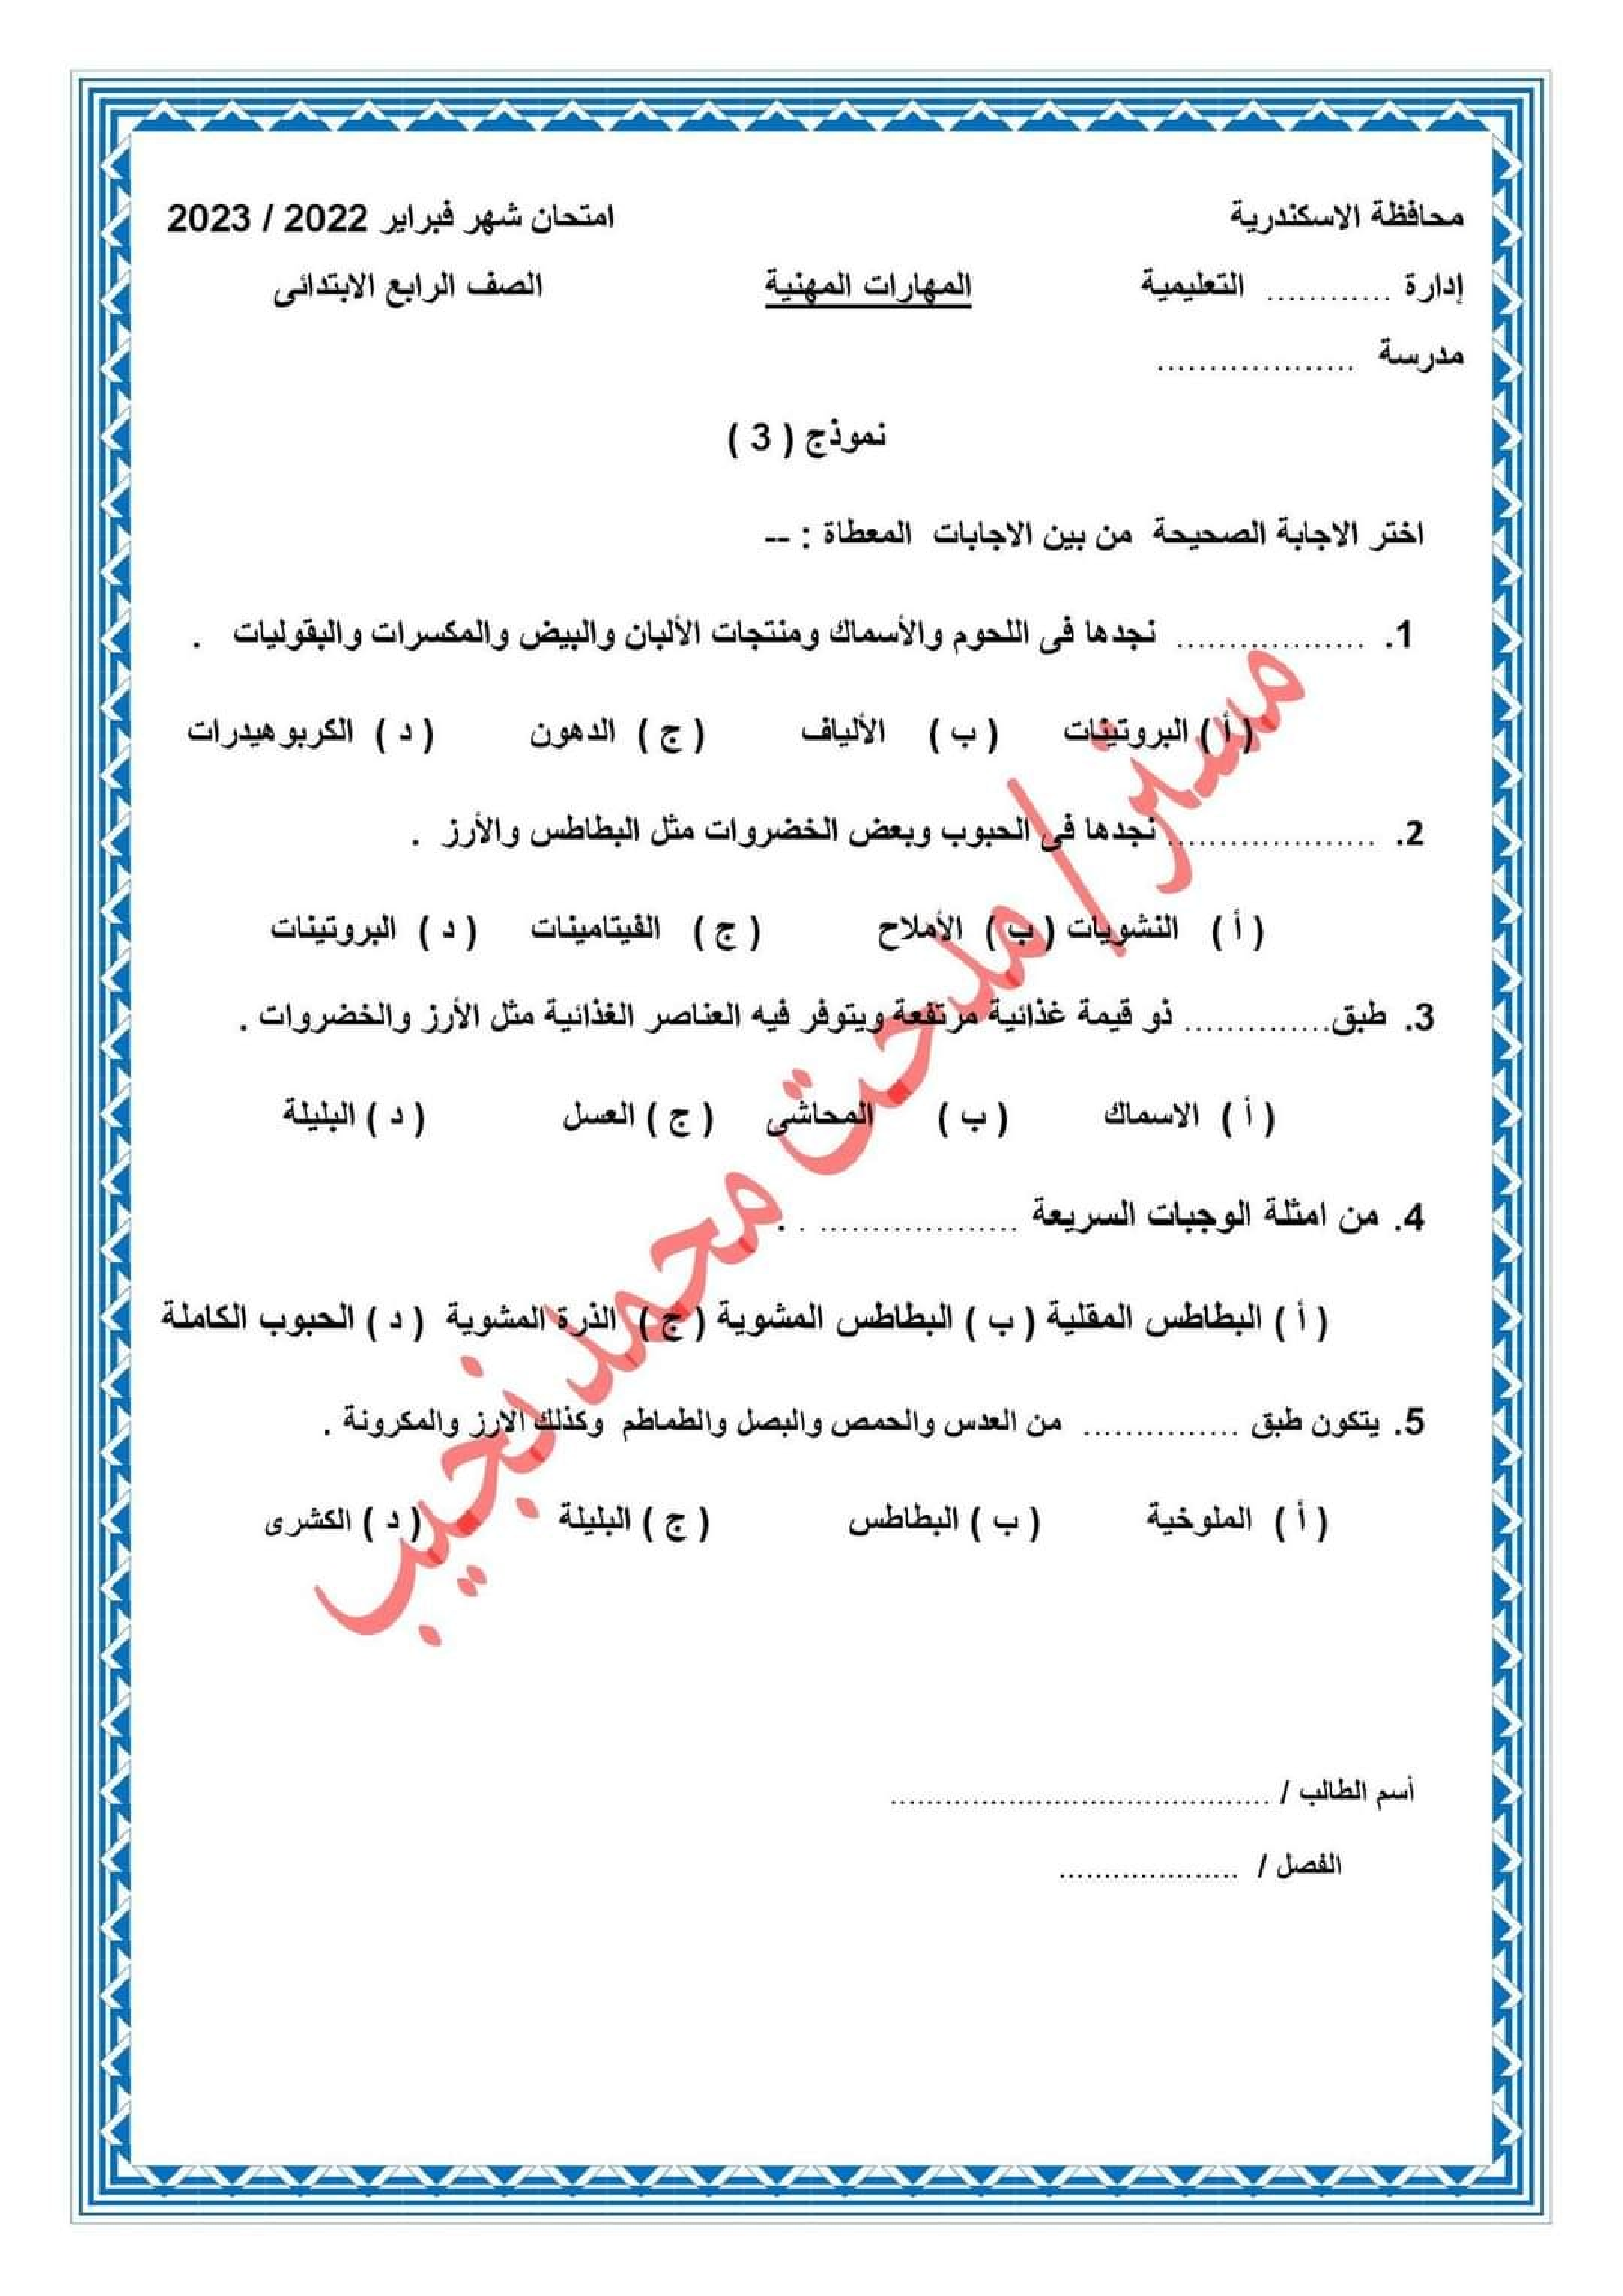 محافظة الاسكندرية امتحان شهر فبراير 2022 / 2023
إدارة ............ التعليمية المهارات المهنية الصف الرابع الابتدائى
مدرسة ...................
نموذج ( 3 )
اختر الاجابة الصحيحة من بين الاجابات المعطاة : --
1. .................. نجدها فى اللحوم والأسماك ومنتجات الألبان والبيض والمكسرات والبقوليات .
( أ ) البروتينات ( ب ) الألياف ( ج ) الدهون ( د ) الكربوهيدرات
2. .................... نجدها فى الحبوب وبعض الخضروات مثل البطاطس والأرز .
( أ ) النشويات ( ب ) الأملاح ( ج ) الفيتامينات ( د ) البروتينات
3. طبق.............. ذو قيمة غذائية مرتفعة ويتوفر فيه العناصر الغذائية مثل الأرز والخضروات .
( أ ) الاسماك ( ب ) المحاشى ( ج ) العسل ( د ) البليلة
4. من امثلة الوجبات السريعة ................... . .
( أ ) البطاطس المقلية ( ب ) البطاطس المشوية ( ج ) الذرة المشوية ( د ) الحبوب الكاملة
5. يتكون طبق ............... من العدس والحمص والبصل والطماطم وكذلك الارز والمكرونة .
( أ ) الملوخية ( ب ) البطاطس ( ج ) البليلة ( د ) الكشرى
مستر/ مدحت محمد نجيب
أسم الطالب / ..........................................
الفصل / ....................